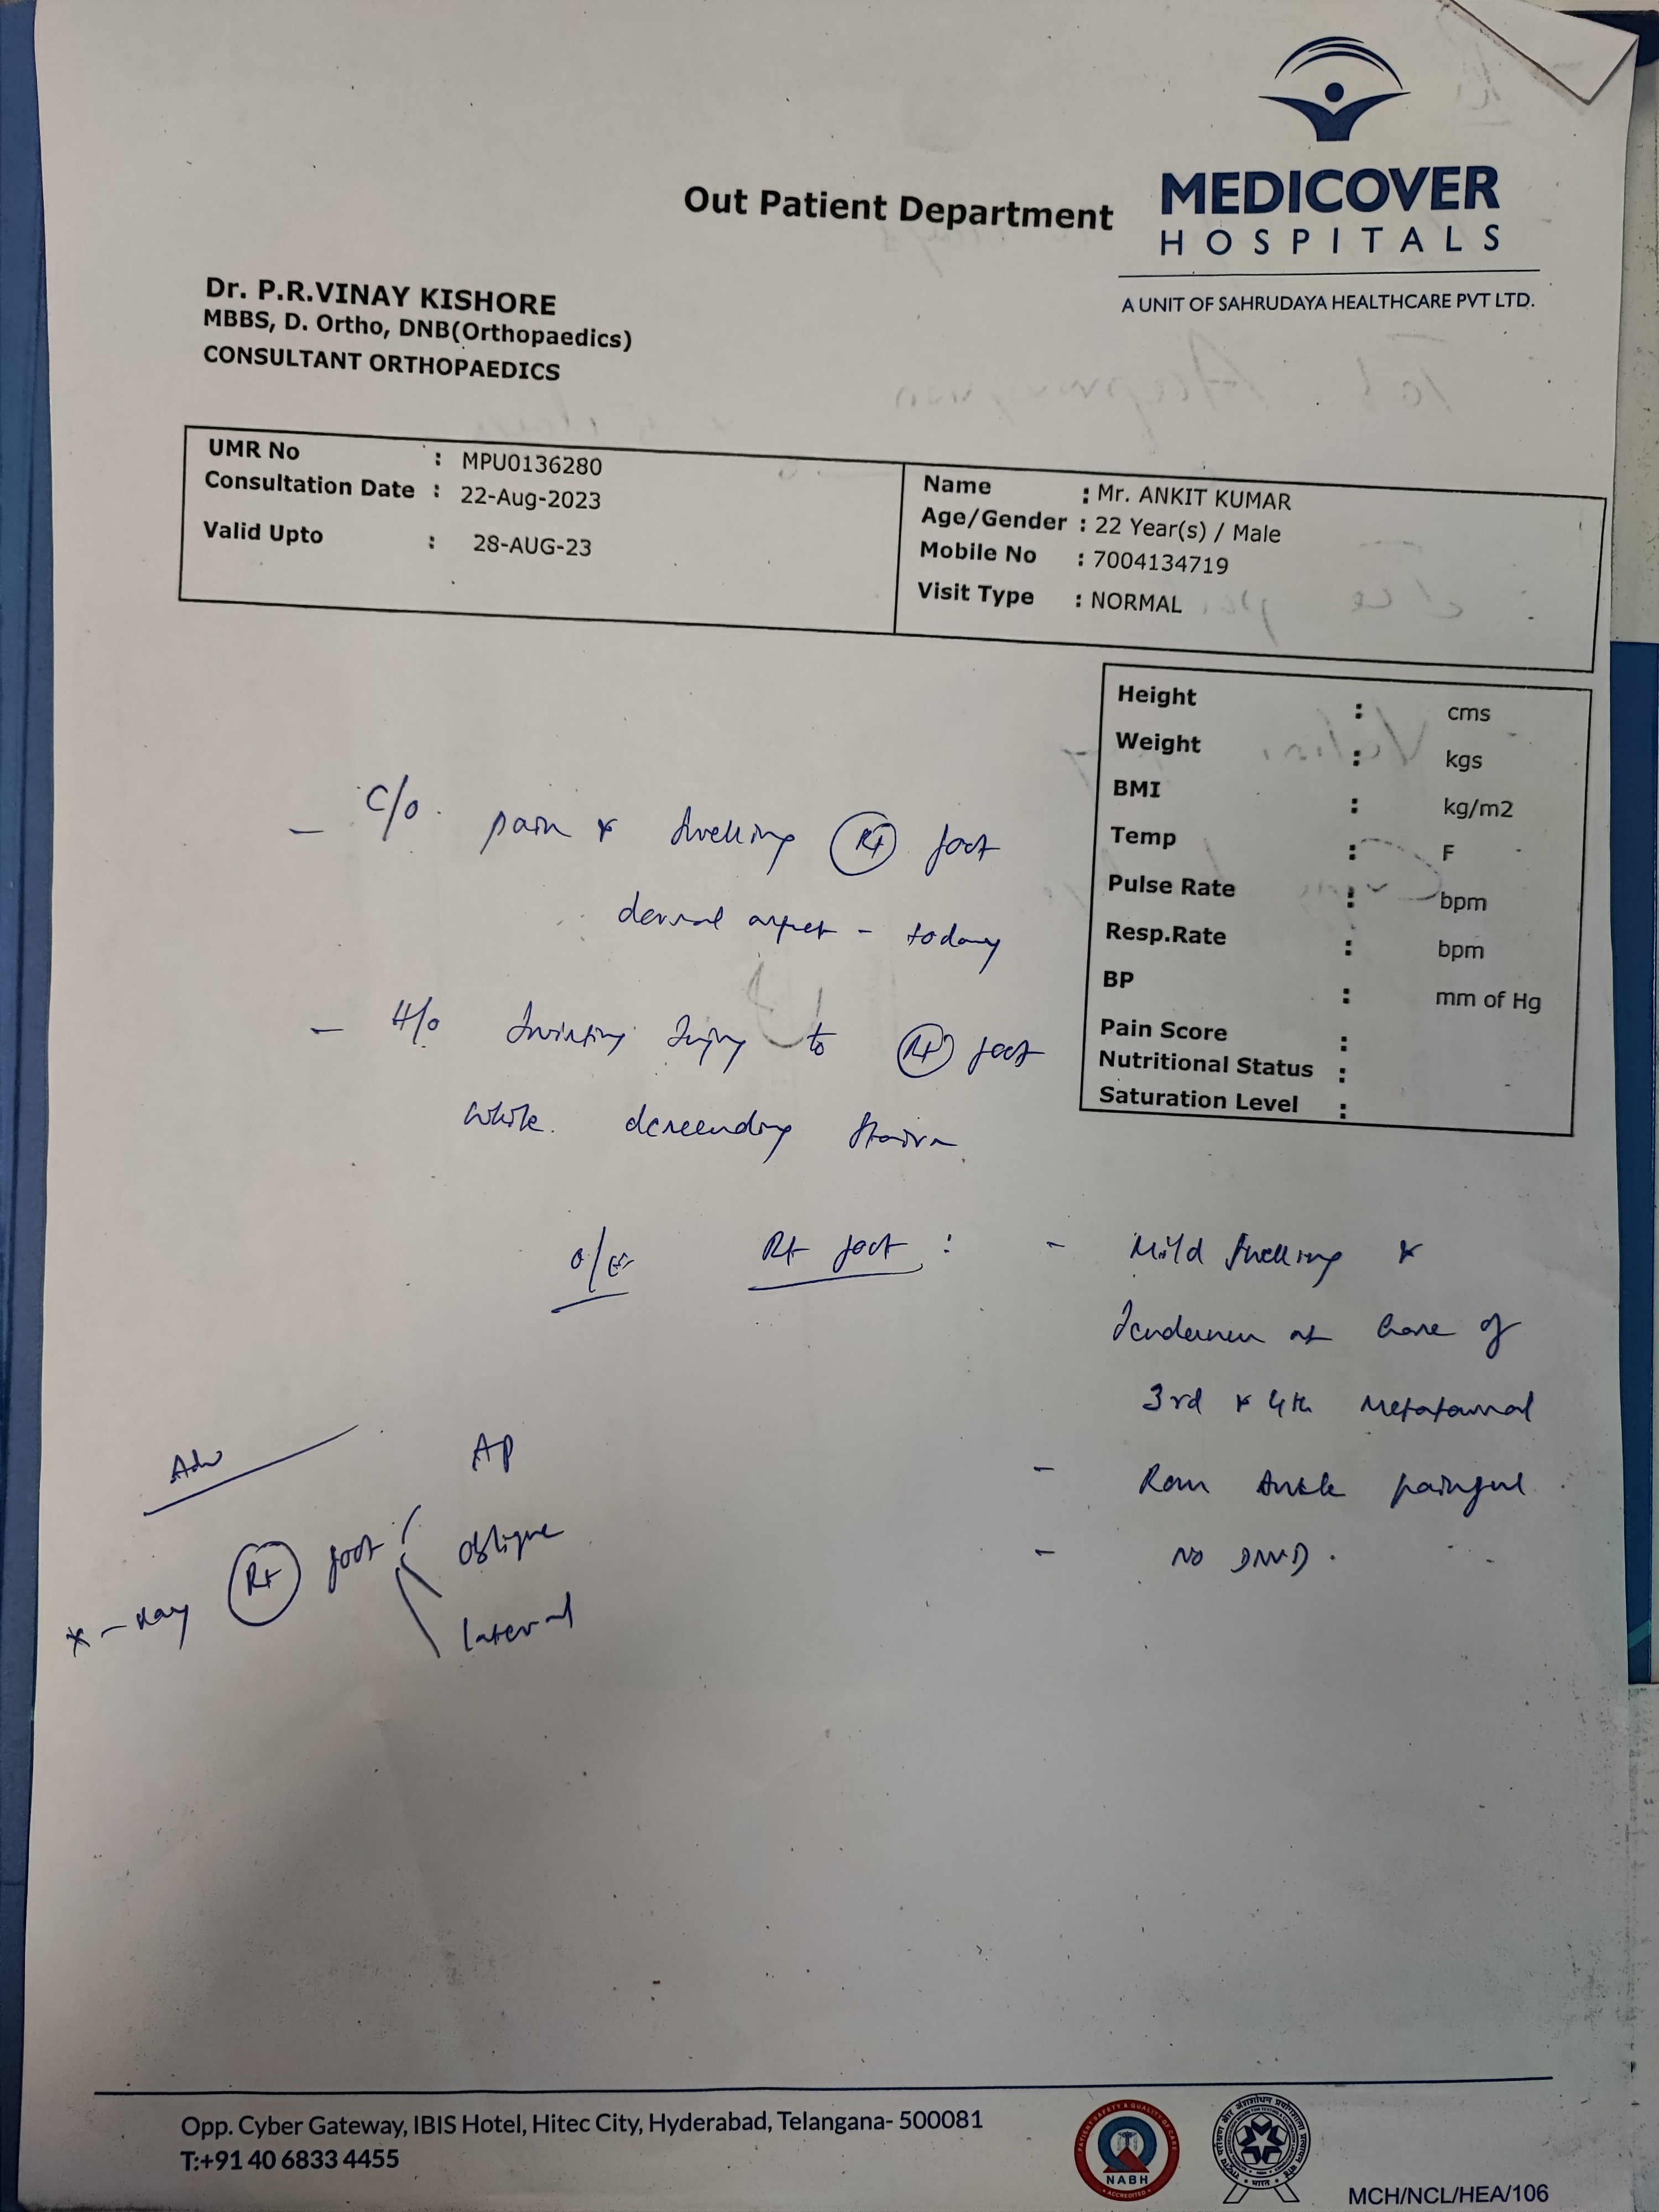 MEDICOVER
HOSPITALS
A UNIT OF SAHRUDAYA HEALTHCARE PVT LTD.
Out Patient Department
Dr. P.R.VINAY KISHORE
MBBS, D. Ortho, DNB(Orthopaedics)
CONSULTANT ORTHOPAEDICS
UMR No : MPU0136280
Consultation Date : 22-Aug-2023
Valid Upto : 28-AUG-23
Name : Mr. ANKIT KUMAR
Age/Gender : 22 Year(s) / Male
Mobile No : 7004134719
Visit Type : NORMAL
Height : cms
Weight : kgs
BMI : kg/m2
Temp : F
Pulse Rate : bpm
Resp.Rate : bpm
BP : mm of Hg
Pain Score :
Nutritional Status :
Saturation Level :
- C/o. pain & swelling Rt foot
dorsal aspect - today
- H/o twisting Injury to Rt foot
while descending stairs
O/E Rt foot : - Mild swelling &
Tenderness at base of
3rd & 4th Metatarsal
- Rom Ankle painful
- No DNVD.
Adv
X-ray Rt foot AP
oblique
lateral
Opp. Cyber Gateway, IBIS Hotel, Hitec City, Hyderabad, Telangana- 500081
T:+91 40 6833 4455
NABH
ACCREDITED
MCH/NCL/HEA/106